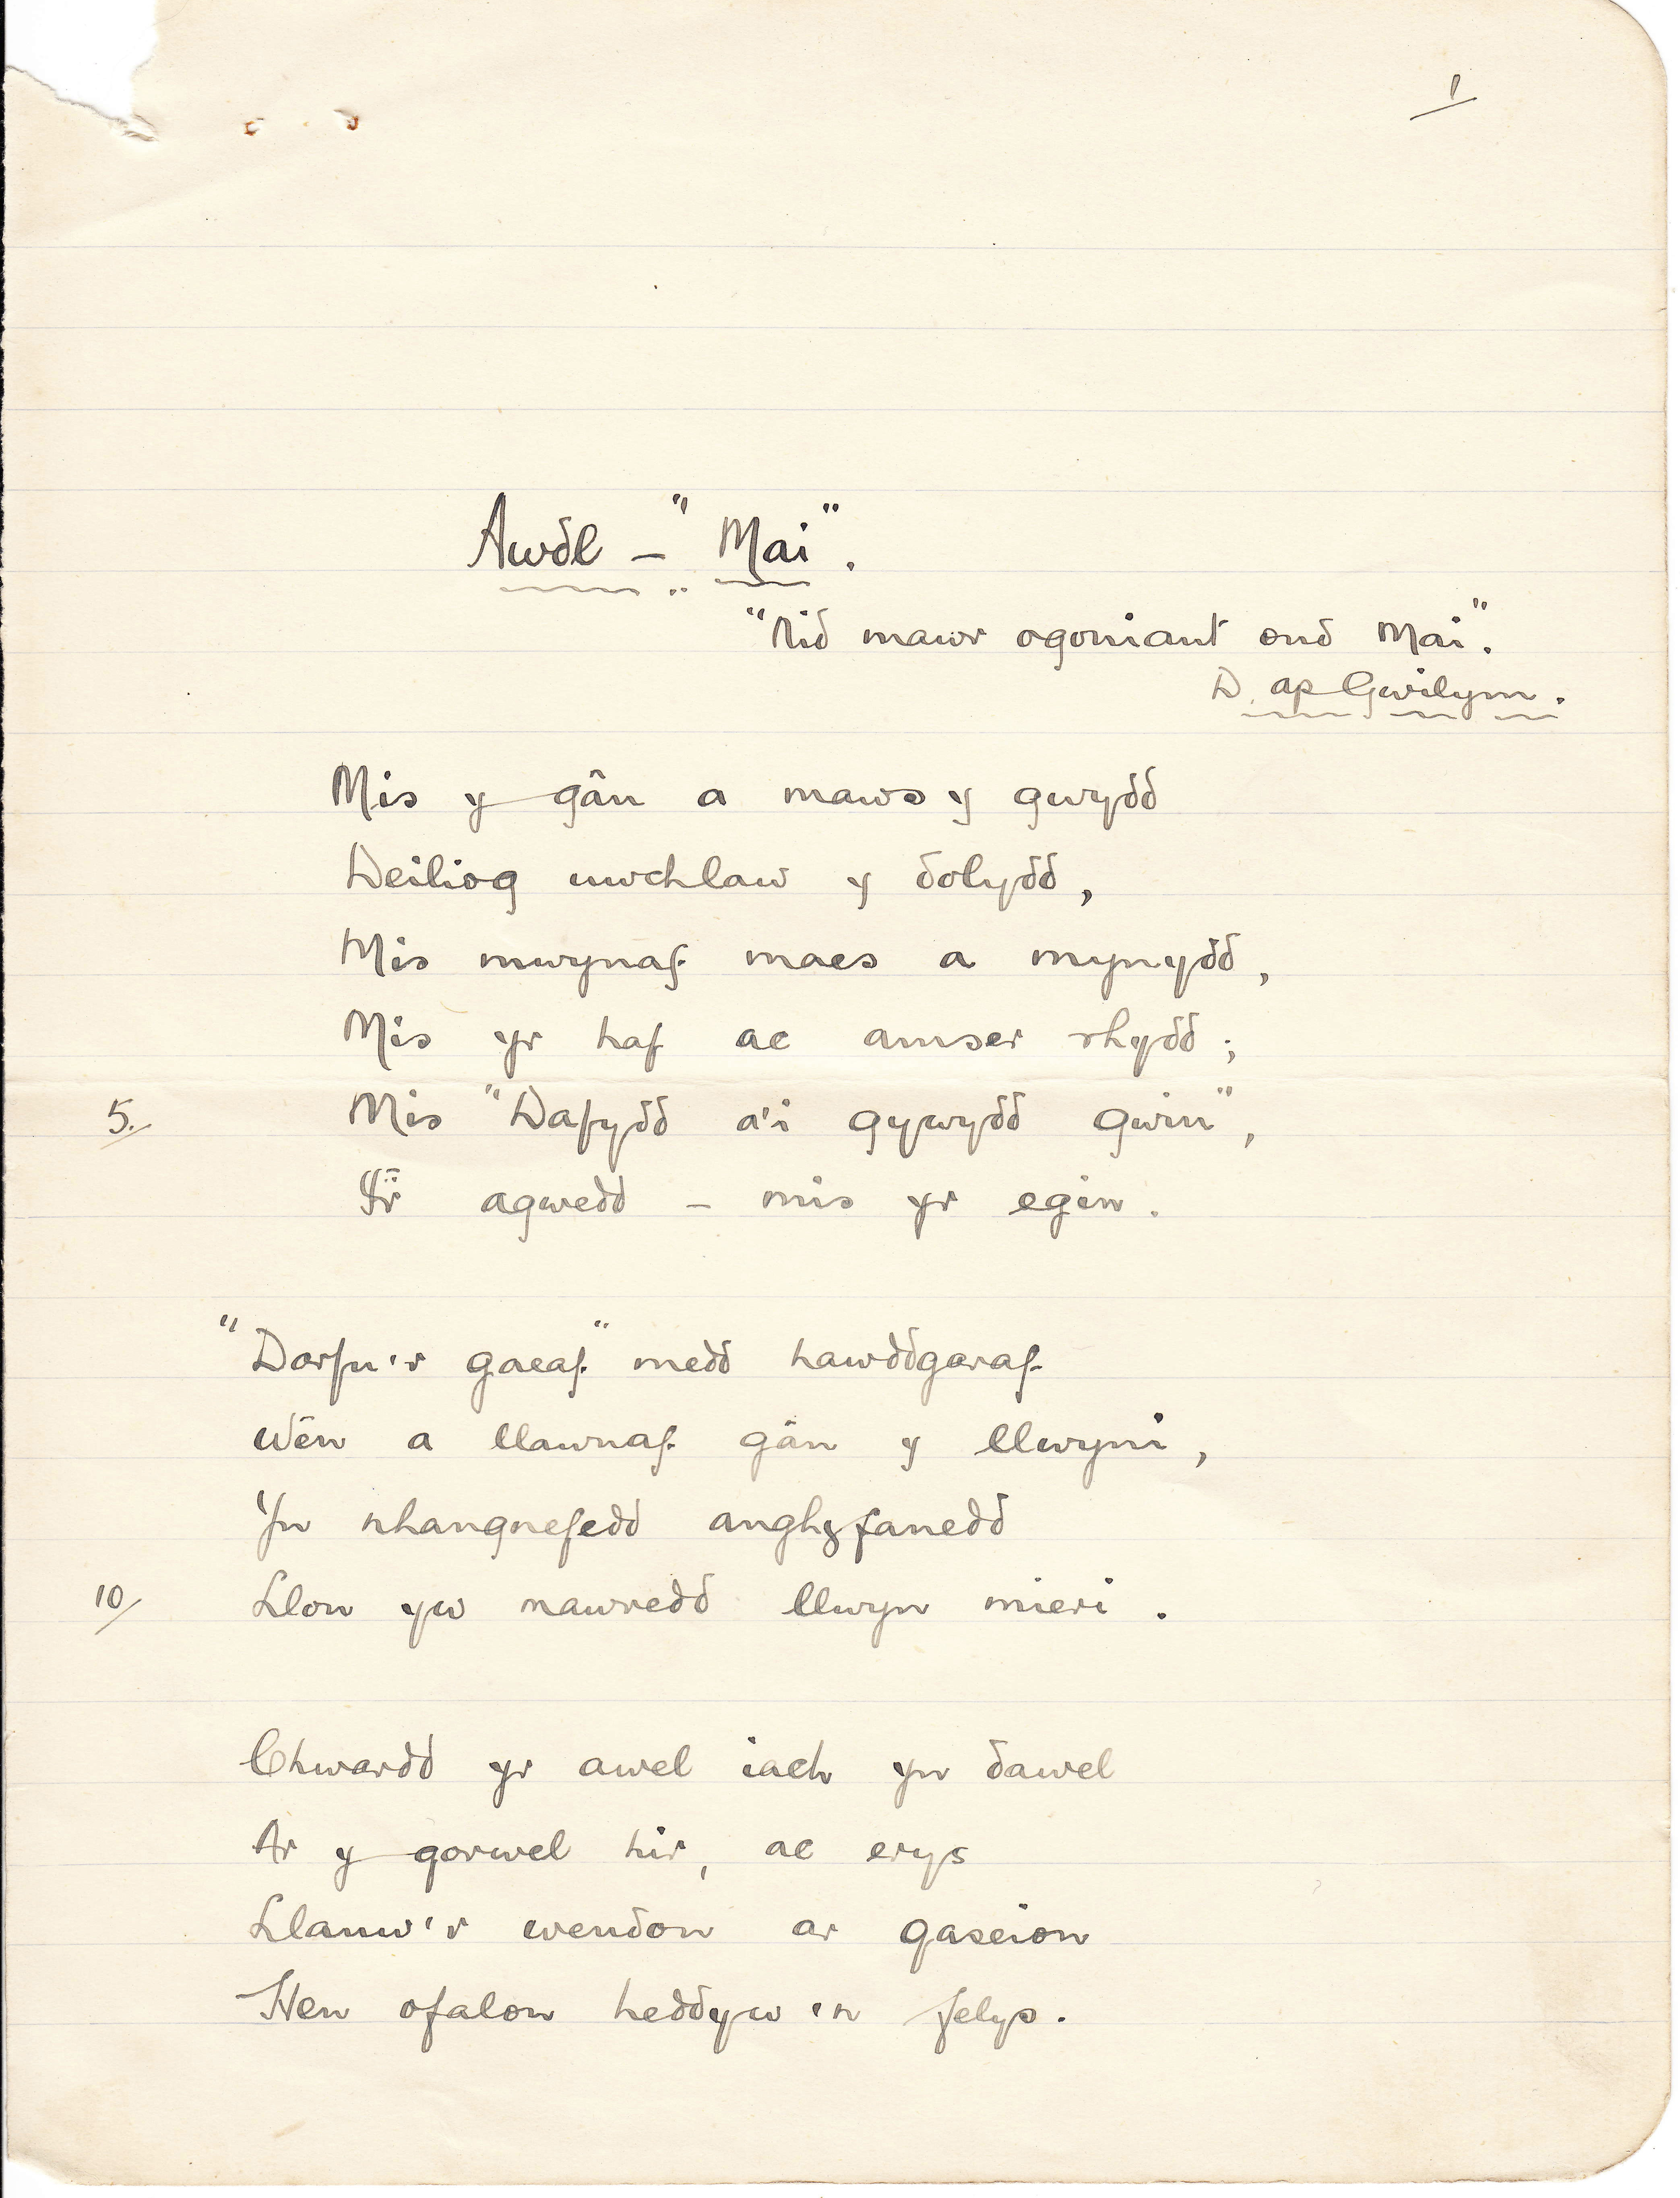 1
Awdl - "Mai".
"Nid mawr ogoniant ond Mai".
D. ap Gwilym.
Mis y gân a maws y gwydd
Deiliog uwchlaw y dolydd,
Mis mwynaf maes a mynydd,
Mis yr haf ac amser rhydd;
5. Mis "Dafydd a'i gywydd gwin",
Ir agwedd - mis yr egin.
"Darfu'r gaeaf" medd hawddgaraf
Wên a llawnaf gân y llwyni,
Yn nhangnefedd anghyfanedd
10/ Llon yw mawredd llwyn mieri.
Chwardd yr awel iach yn dawel
Ar y gorwel hir, ac erys
Llanw'r wendon ar gaseion
Hen ofalon heddyw'n felys.